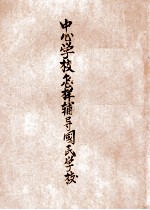 中心学校怎样辅导国民学校